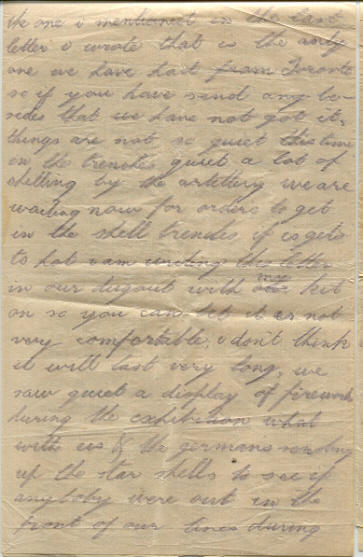 the one i mentioned in the last
letter i wrote that is the only
one we have had from Toronto
so if you have send any be-
sides that we have not got it,
things are not so quiet this time
in the trenches quiet a lot of
shelling by the artillery we are
waiting now for orders to get
in the shell trenches if is gets
to hot i am writing this letter
in our dugout with kit
on so you can bet it is not
very comfortable, i don't think
it will last very long, we
saw quiet a display of firework
during the exhibition what
with us & the germans sending
up the star shells to see if
anybaby were out in the
front of our lines during